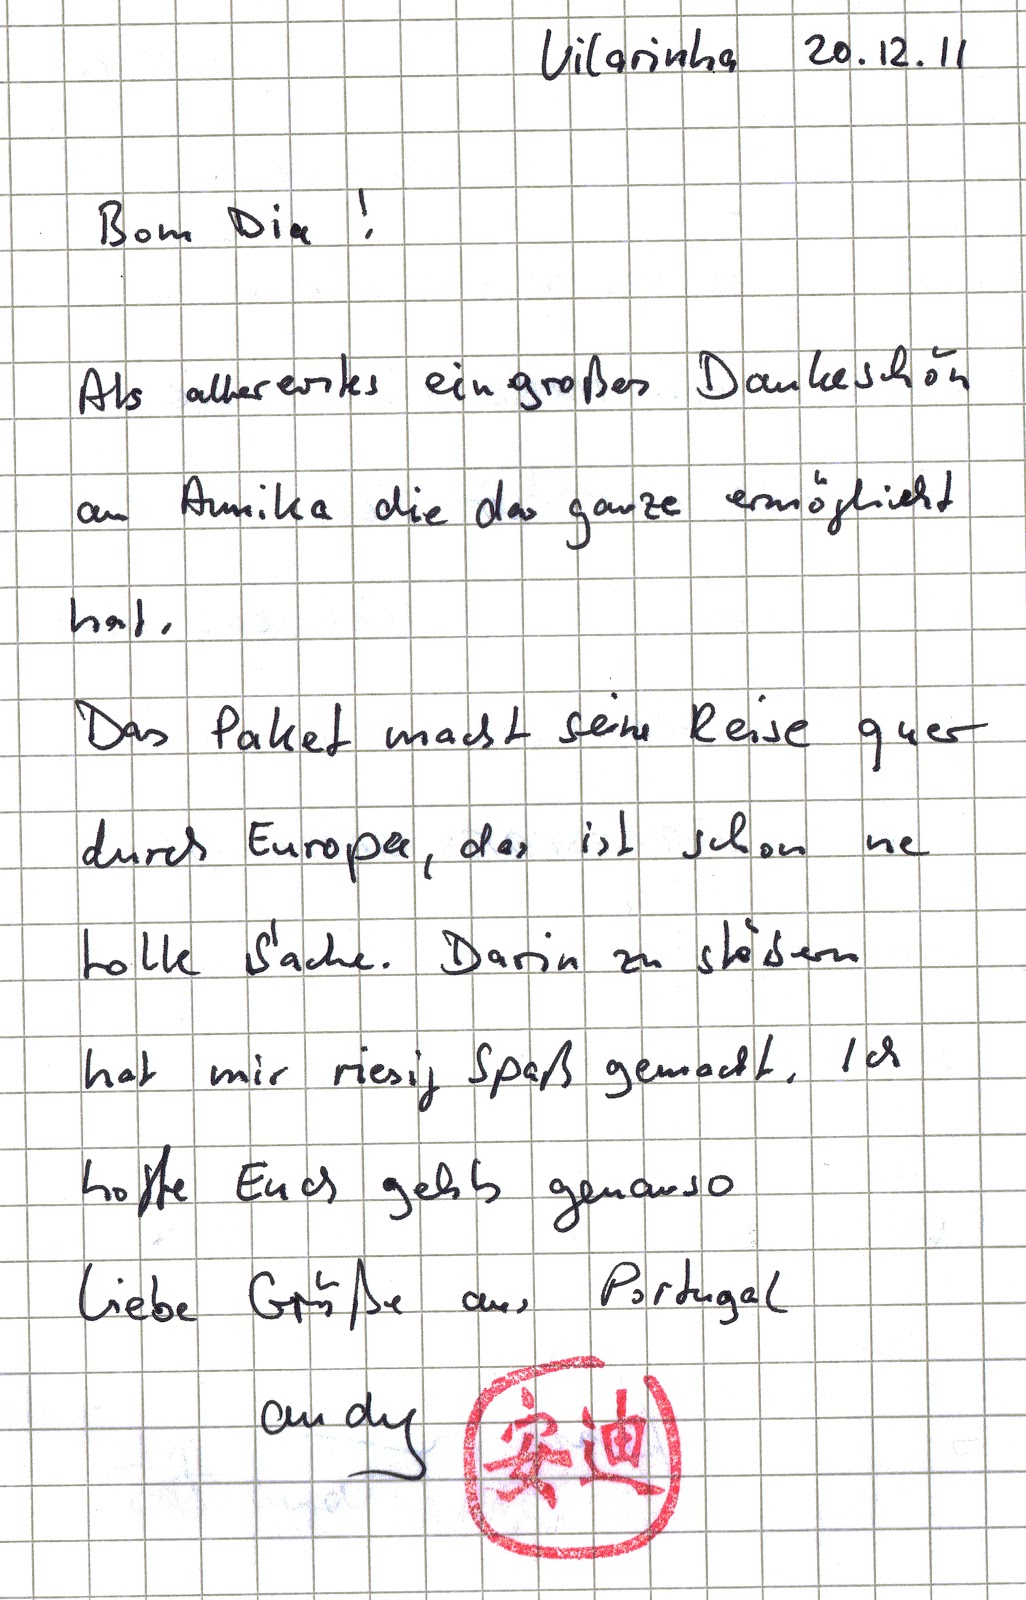 Vilarinha 20.12.11
Bom Dia !
Als allererstes ein großes Dankeschön
an Annika die das ganze ermöglicht
hat.
Das Paket macht seine Reise quer
durch Europa, das ist schon ne
tolle Sache. Darin zu stöbern
hat mir riesig Spaß gemacht. Ich
hoffe Euch gehts genauso
Liebe Grüße aus Portugal
andy 安迪